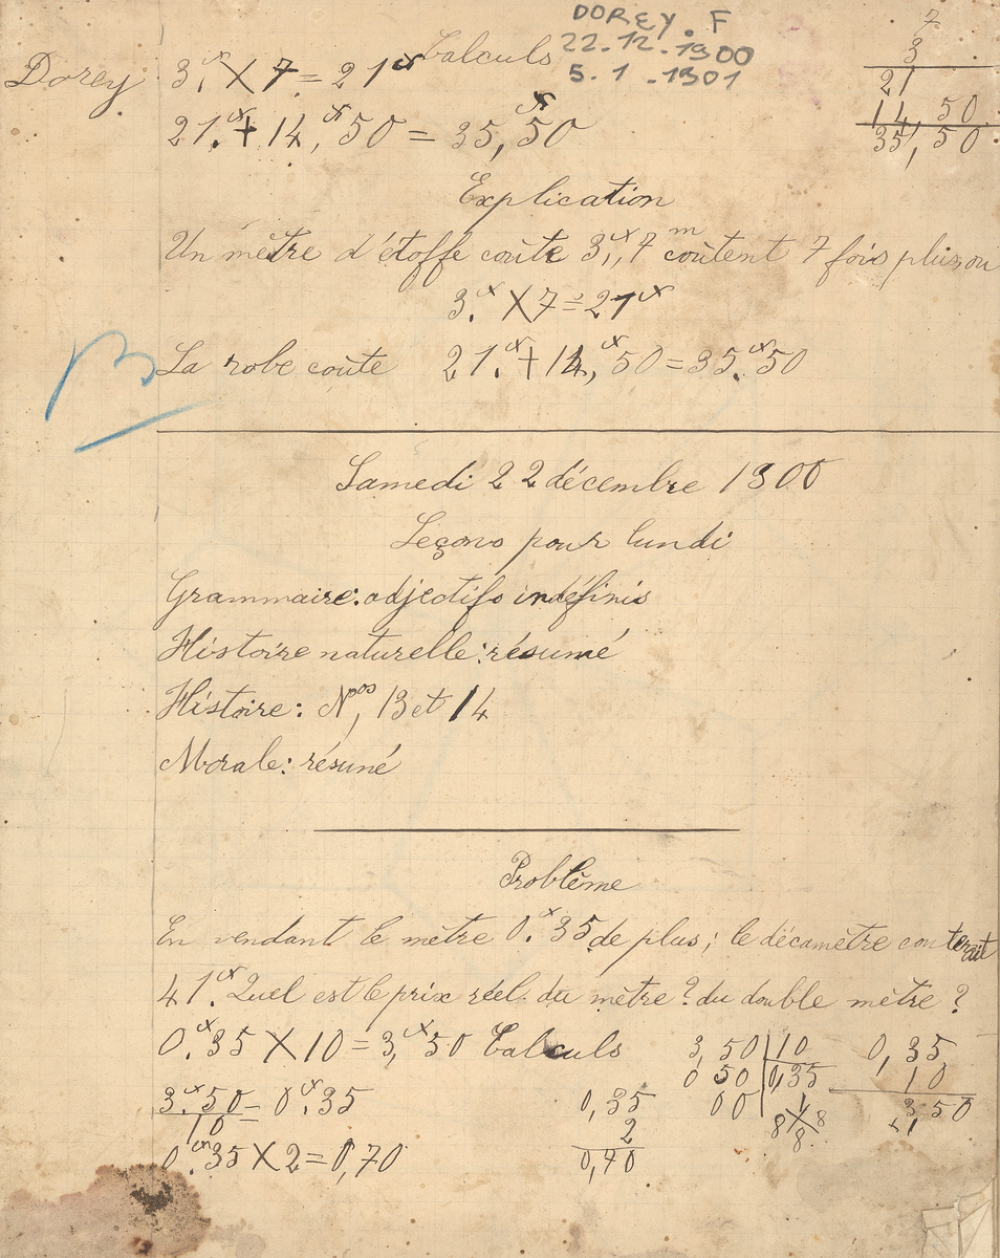 DOREY. F
22.12.1900
5.1.1901
Dorey
Calculs
3.fr X 7 = 21fr
21.fr + 14,fr 50 = 35,fr 50
7
3
21
14 50
35,50
Explication
Un mètre d'étoffe coûte 3,fr, 7m coûtent 7 fois plus, ou
3.fr X 7 = 21fr
B
La robe coûte 21.fr + 14,fr 50 = 35.fr 50
Samedi 22 décembre 1900
Leçons pour lundi
Grammaire: adjectifs indéfinis
Histoire naturelle: résumé
Histoire: Nos, 13 et 14
Morale: résumé
Problème
En vendant le mètre 0.fr 35 de plus; le décamètre couterait
41.fr Quel est le prix réel du mètre? du double mètre?
0.fr 35 X 10 = 3,fr 50 Calculs
3.fr 50 / 10 = 0.fr 35
0.fr 35 X 2 = 0,70
0,35
2
0,70
3,50 | 10
0 50 | 0,35
00
1
8 X 8
8
0,35
10
3 50